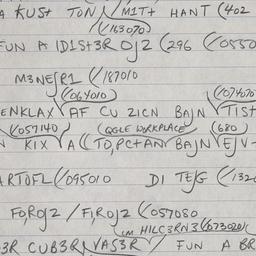 A KUST TON / M1T+ HANT (402
(163070)
FUN A ID1ST3R OJ2 (296 (0550
M3NEJR1 (187010
(064010) (074070)
ENKLAX AF CU ZICN BAJN TIST
(057140) (QGLE WORKPLACE) (680)
KIX A (TO,PC+AN BAJN EJV-
ARTOFL (095010 DI TEJG (132
FO,ROJ2 / F1,ROJ2 (057080
LM HILC3RN3 (673020)
3R CUB3R VAS3R / FUN A BR